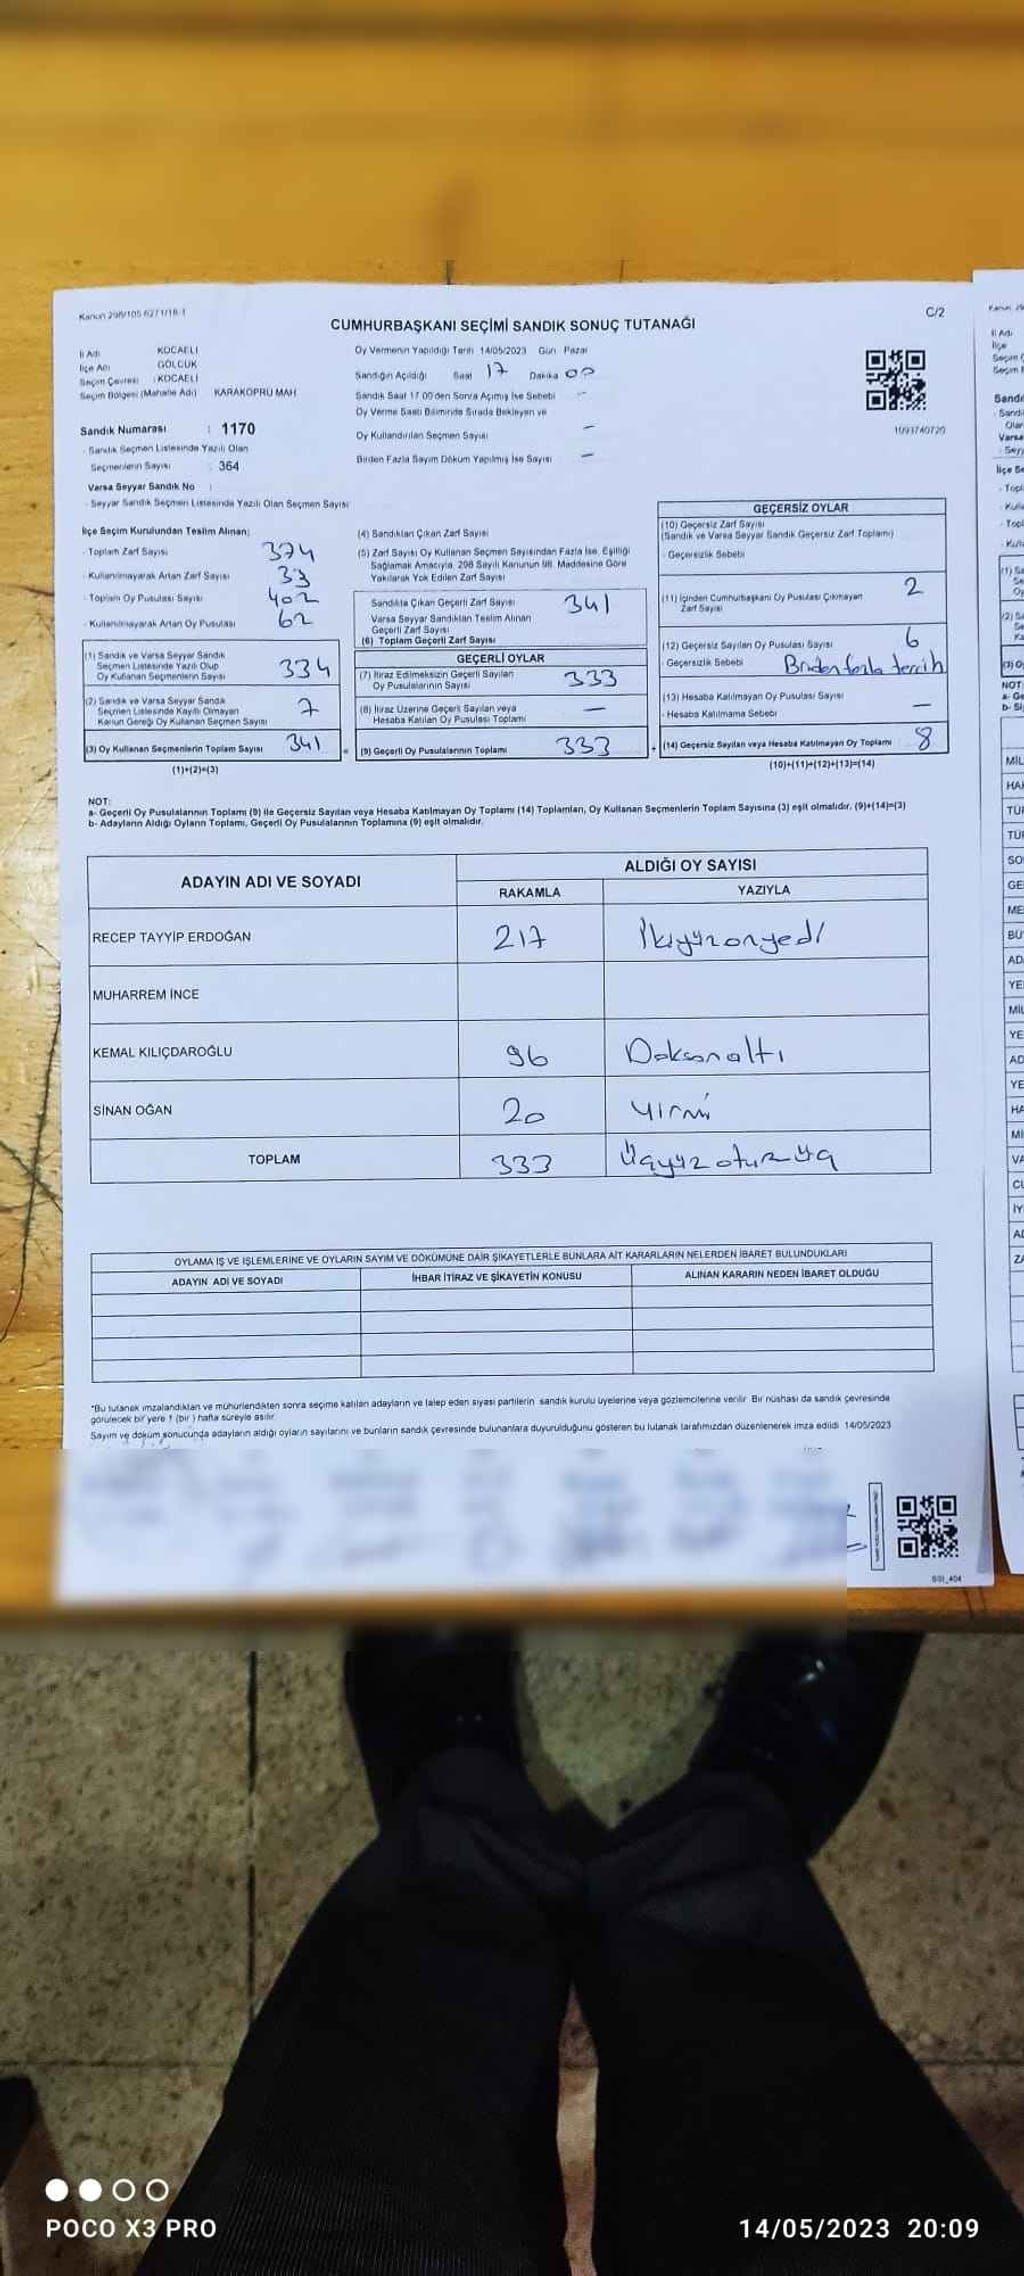 Kanun 298/105 6271/18-1
C/2
CUMHURBAŞKANI SEÇİMİ SANDIK SONUÇ TUTANAĞI
İl Adı KOCAELİ
İlçe Adı GÖLCÜK
Seçim Çevresi : KOCAELİ
Seçim Bölgesi (Mahalle Adı) KARAKÖPRÜ MAH
Sandık Numarası : 1170
- Sandık Seçmen Listesinde Yazılı Olan
Seçmenlerin Sayısı : 364
Varsa Seyyar Sandık No :
- Seyyar Sandık Seçmen Listesinde Yazılı Olan Seçmen Sayısı
Oy Vermenin Yapıldığı Tarih 14/05/2023 Gün Pazar
Sandığın Açıldığı Saat 17 Dakika 00
Sandık Saat 17.00'den Sonra Açımış İse Sebebi –
Oy Verme Saati Bitiminde Sırada Bekleyen ve
Oy Kullandırılan Seçmen Sayısı –
Birden Fazla Sayım Döküm Yapılmış İse Sayısı –
1093740720
İlçe Seçim Kurulundan Teslim Alınan;
- Toplam Zarf Sayısı 374
- Kullanılmayarak Artan Zarf Sayısı 33
- Toplam Oy Pusulası Sayısı 402
- Kullanılmayarak Artan Oy Pusulası 62
(1) Sandık ve Varsa Seyyar Sandık
Seçmen Listesinde Yazılı Olup
Oy Kullanan Seçmenlerin Sayısı 334
(2) Sandık ve Varsa Seyyar Sandık
Seçmen Listesinde Kayıtlı Olmayan
Kanun Gereği Oy Kullanan Seçmen Sayısı 7
(3) Oy Kullanan Seçmenlerin Toplam Sayısı 341
(1)+(2)=(3)
(4) Sandıktan Çıkan Zarf Sayısı
(5) Zarf Sayısı Oy Kullanan Seçmen Sayısından Fazla İse, Eşitliği
Sağlamak Amacıyla, 298 Sayılı Kanunun 98. Maddesine Göre
Yakılarak Yok Edilen Zarf Sayısı
Sandıkta Çıkan Geçerli Zarf Sayısı 341
Varsa Seyyar Sandıktan Teslim Alınan
Geçerli Zarf Sayısı
(6) Toplam Geçerli Zarf Sayısı
GEÇERLİ OYLAR
(7) İtiraz Edilmeksizin Geçerli Sayılan
Oy Pusulalarının Sayısı 333
(8) İtiraz Üzerine Geçerli Sayılan veya
Hesaba Katılan Oy Pusulası Toplamı –
(9) Geçerli Oy Pusulalarının Toplamı 333
GEÇERSİZ OYLAR
(10) Geçersiz Zarf Sayısı
(Sandık ve Varsa Seyyar Sandık Geçersiz Zarf Toplamı)
- Geçersizlik Sebebi
(11) İçinden Cumhurbaşkanı Oy Pusulası Çıkmayan
Zarf Sayısı 2
(12) Geçersiz Sayılan Oy Pusulası Sayısı 6
- Geçersizlik Sebebi Birden fazla tercih
(13) Hesaba Katılmayan Oy Pusulası Sayısı
- Hesaba Katılmama Sebebi –
(14) Geçersiz Sayılan veya Hesaba Katılmayan Oy Toplamı 8
(10)+(11)+(12)+(13)=(14)
NOT:
a- Geçerli Oy Pusulalarının Toplamı (9) ile Geçersiz Sayılan veya Hesaba Katılmayan Oy Toplamı (14) Toplamları, Oy Kullanan Seçmenlerin Toplam Sayısına (3) eşit olmalıdır. (9)+(14)=(3)
b- Adayların Aldığı Oyların Toplamı, Geçerli Oy Pusulalarının Toplamına (9) eşit olmalıdır.
ADAYIN ADI VE SOYADI
ALDIĞI OY SAYISI
RAKAMLA YAZIYLA
RECEP TAYYİP ERDOĞAN 217 İkiyüzonyedi
MUHARREM İNCE
KEMAL KILIÇDAROĞLU 96 Doksanaltı
SİNAN OĞAN 20 Yirmi
TOPLAM 333 Üçyüzotuzüç
OYLAMA İŞ VE İŞLEMLERİNE VE OYLARIN SAYIM VE DÖKÜMÜNE DAİR ŞİKAYETLERLE BUNLARA AİT KARARLARIN NELERDEN İBARET BULUNDUKLARI
ADAYIN ADI VE SOYADI İHBAR İTİRAZ VE ŞİKAYETİN KONUSU ALINAN KARARIN NEDEN İBARET OLDUĞU
*Bu tutanak imzalandıktan ve mühürlendikten sonra seçime katılan adayların ve talep eden siyasi partilerin sandık kurulu üyelerine veya gözlemcilerine verilir. Bir nüshası da sandık çevresinde
görülecek bir yere 1 (bir) hafta süreyle asılır.
Sayım ve döküm sonucunda adayların aldığı oyların sayılarını ve bunların sandık çevresinde bulunanlara duyurulduğunu gösteren bu tutanak tarafımızdan düzenlenerek imza edildi 14/05/2023
POCO X3 PRO
14/05/2023 20:09